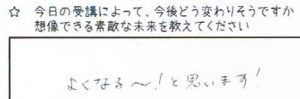 ☆ 今日の受講によって、今後どう変わりそうですか
想像できる素敵な未来を教えてください
よくなる〜!と思います!